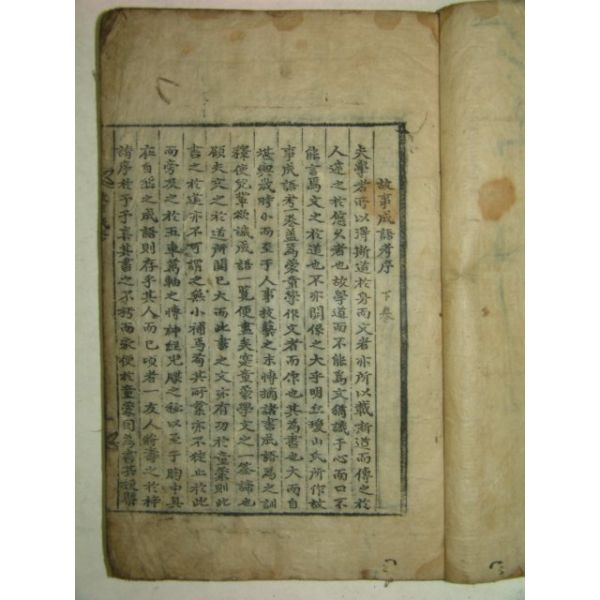 故事成語考序 下叅
夫學者所以得斯道於身而文者亦所以載斯道而傳之於
人達之於悠久者也故學道而不能爲文猶識于心而口不
能言爲文之於道也不亦關係之大乎明丘瓊山氏所作故
事成語考一卷盖爲蒙童學作文者而作也其爲書也大而自
堪輿歲時小而至于人事技藝之末博摘諸書成語爲之訓
釋使兒輩欲識成語一覧便盡矣寔童蒙學文之一筌蹄也
顧夫文之於道所關已大而此書之文亦有功於童蒙則此
書之於道亦不可謂之無小補焉苟其所業亦不徒止於此
而旁及之於五車萬軸之博神起兒牒之秘以至于胸中具
在自出之成語則存乎其人而已頃者一友人將壽之於梓
請序於予予喜其書之不朽而永便於童蒙因爲書其